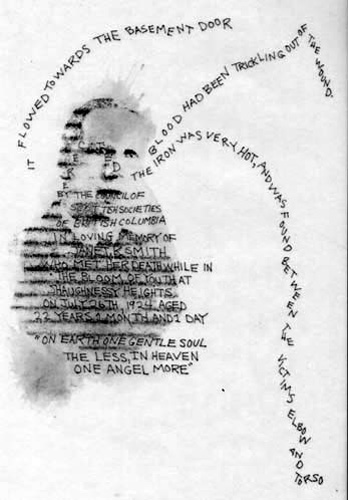 IT FLOWED TOWARDS THE BASEMENT DOOR
BLOOD HAD BEEN TRICKLING OUT OF THE WOUND.
THE IRON WAS VERY HOT, AND WAS FOUND BETWEEN THE VICTIMS ELBOW AND TORSO
ERECTED
BY THE COUNCIL OF
SCOTTISH SOCIETIES
OF BRITISH COLUMBIA
IN LOVING MEMORY OF
JANET K SMITH
WHO MET HER DEATH WHILE IN
THE BLOOM OF YOUTH AT
SHAUGHNESSY HEIGHTS
ON JULY 26TH 1924 AGED
22 YEARS 1 MONTH AND 1 DAY
"ON EARTH ONE GENTLE SOUL
THE LESS, IN HEAVEN
ONE ANGEL MORE"